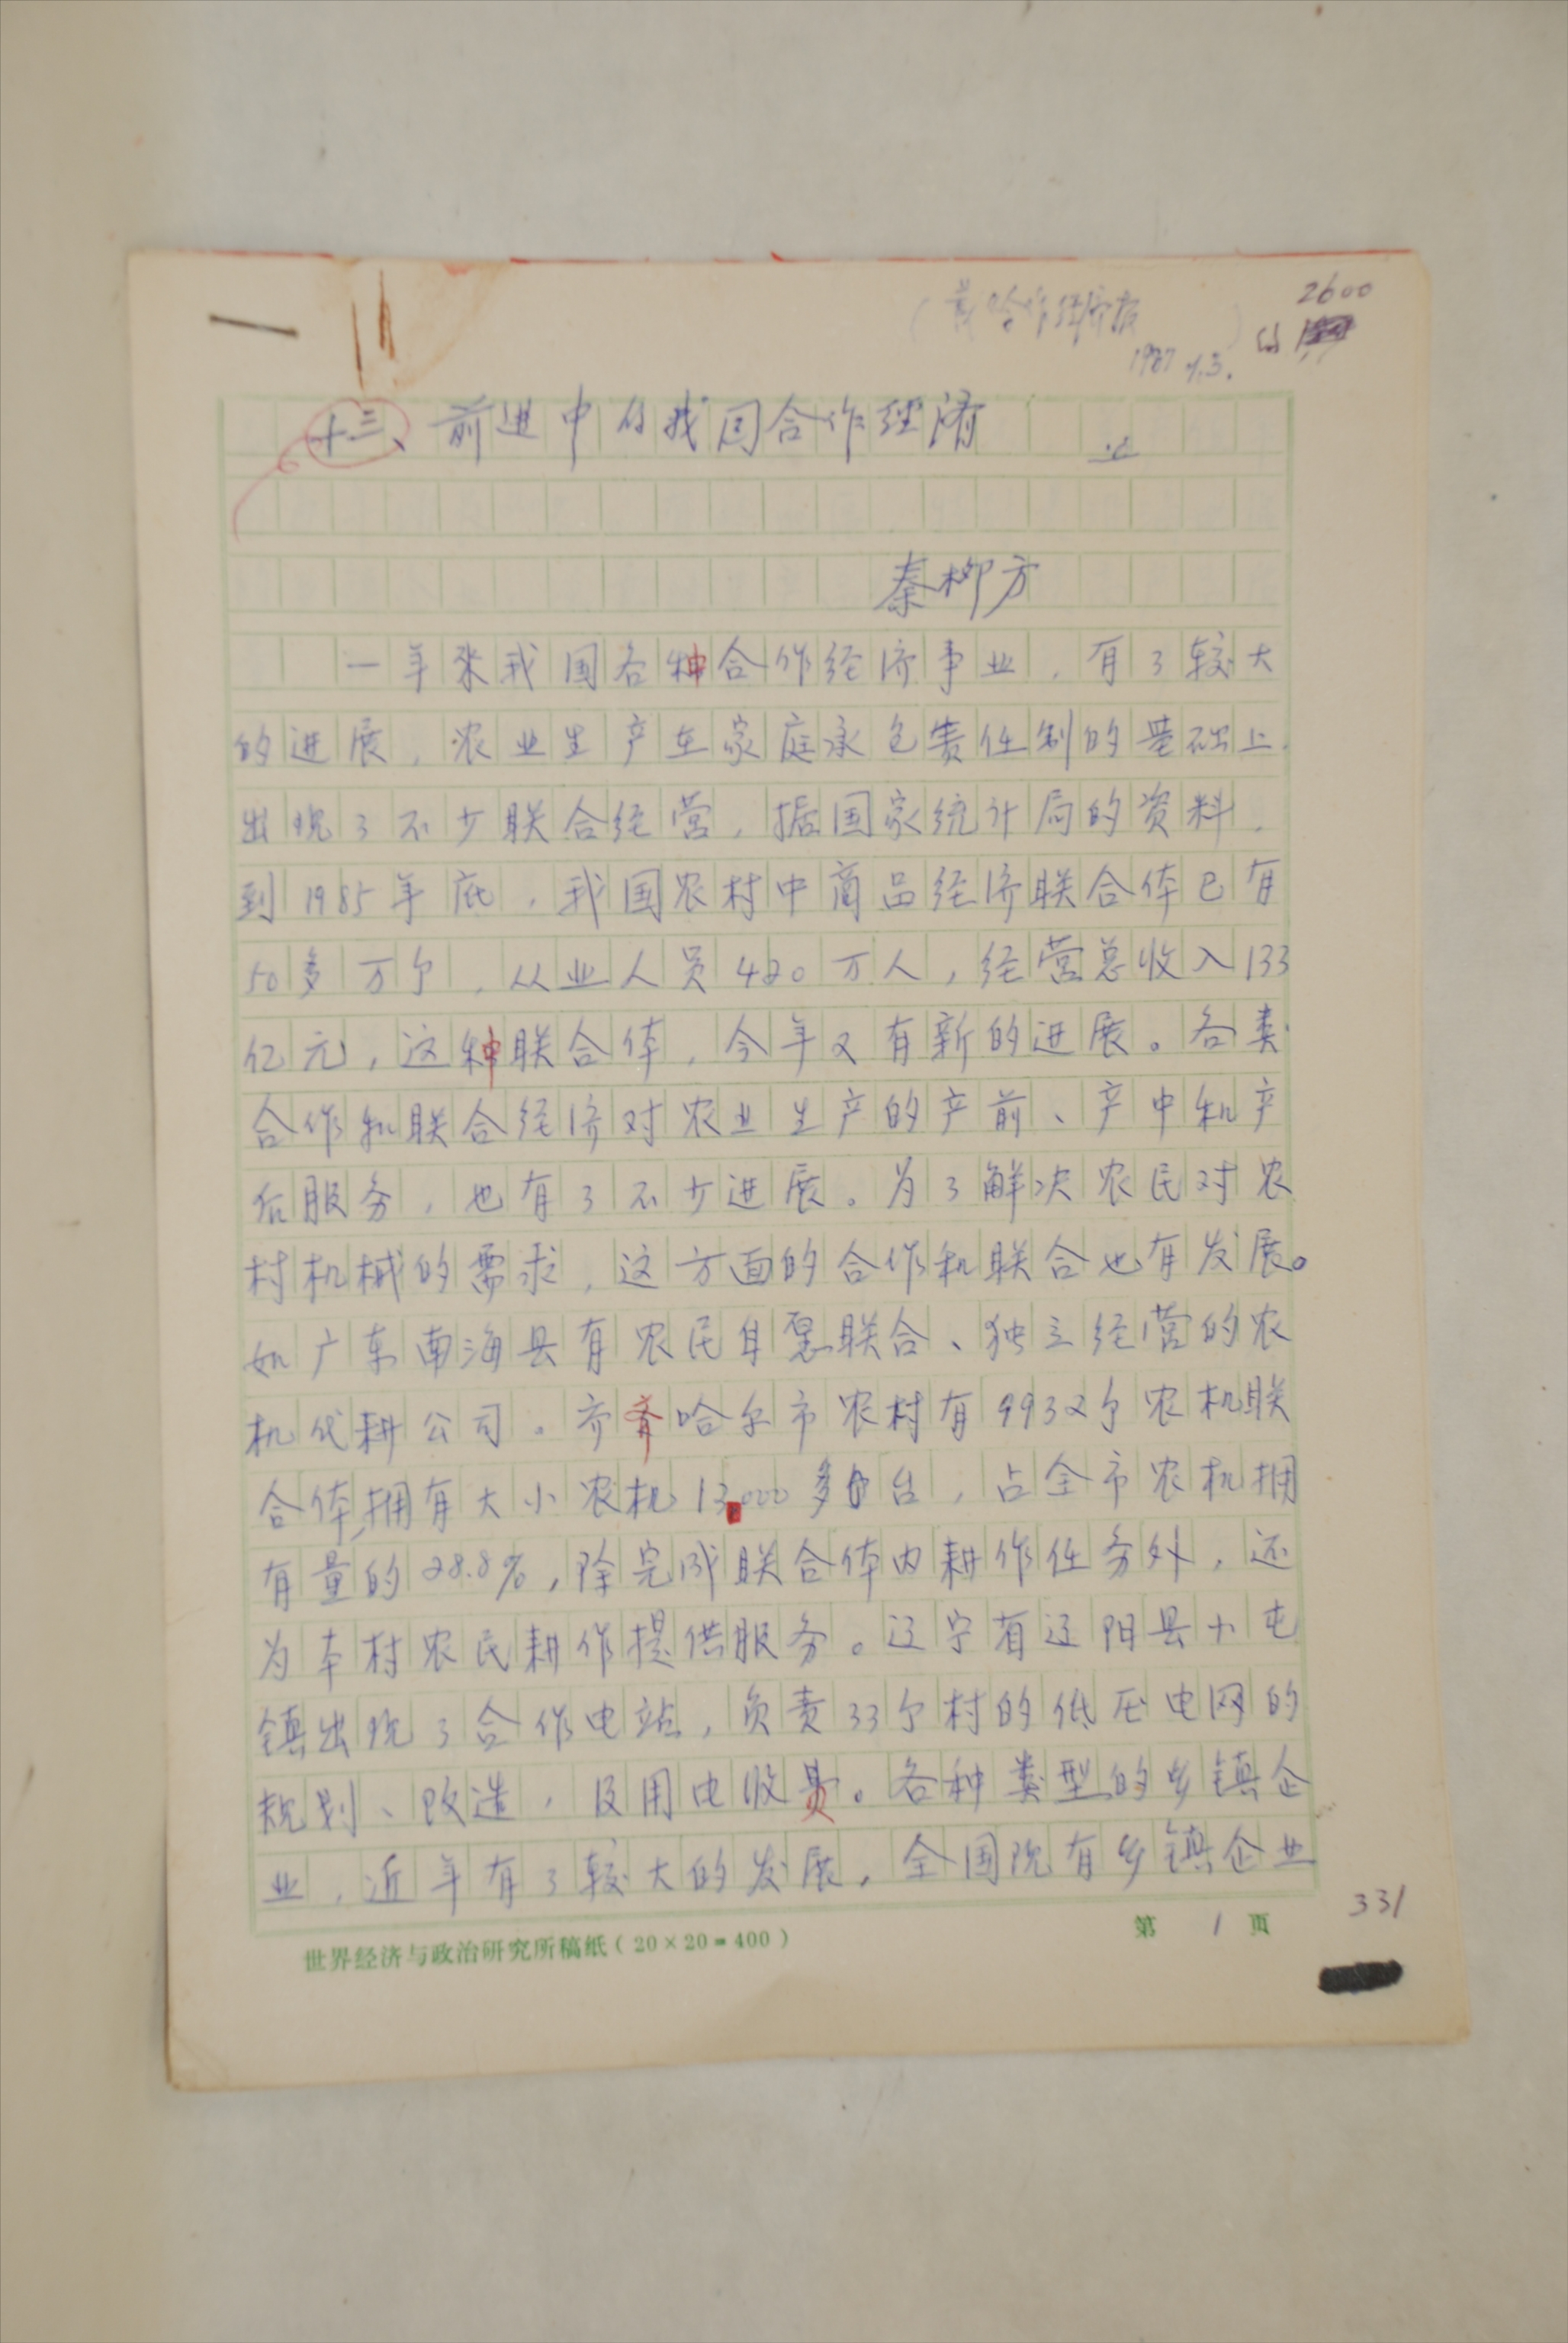 2600
合作经济报
1987
十三、前进中的我国合作经济
秦柳方
一年来我国各种合作经济事业，有了较大
的进展，农业生产在家庭承包责任制的基础上
出现了不少联合经营，据国家统计局的资料，
到1985年底，我国农村中商品经济联合体已有
50多万个，从业人员420万人，经营总收入133
亿元，这种联合体，今年又有新的进展。各类
合作和联合经济对农业生产的产前、产中和产
后服务，也有了不少进展。为了解决农民对农
村机械的需求，这方面的合作和联合也有发展。
如广东南海县有农民自愿联合、独立经营的农
机代耕公司。齐齐哈尔市农村有9932个农机联
合体，拥有大小农机13000多台，占全市农机拥
有量的28.8%，除完成联合体内耕作任务外，还
为本村农民耕作提供服务。辽宁省辽阳县小屯
镇出现了合作电站，负责33个村的低压电网的
规划、改造，及用电收费。各种类型的乡镇企
业，近年有了较大的发展，全国现有乡镇企业
世界经济与政治研究所稿纸（20×20=400）
第 1 页
331